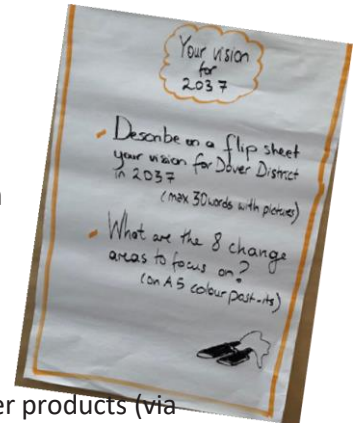 Your vision
for
2037
Describe on a flip sheet
your vision for Dover District
in 2037
(max 30 words with pictures)
What are the 8 change
areas to focus on?
(on A5 colour post-its)
er products (via